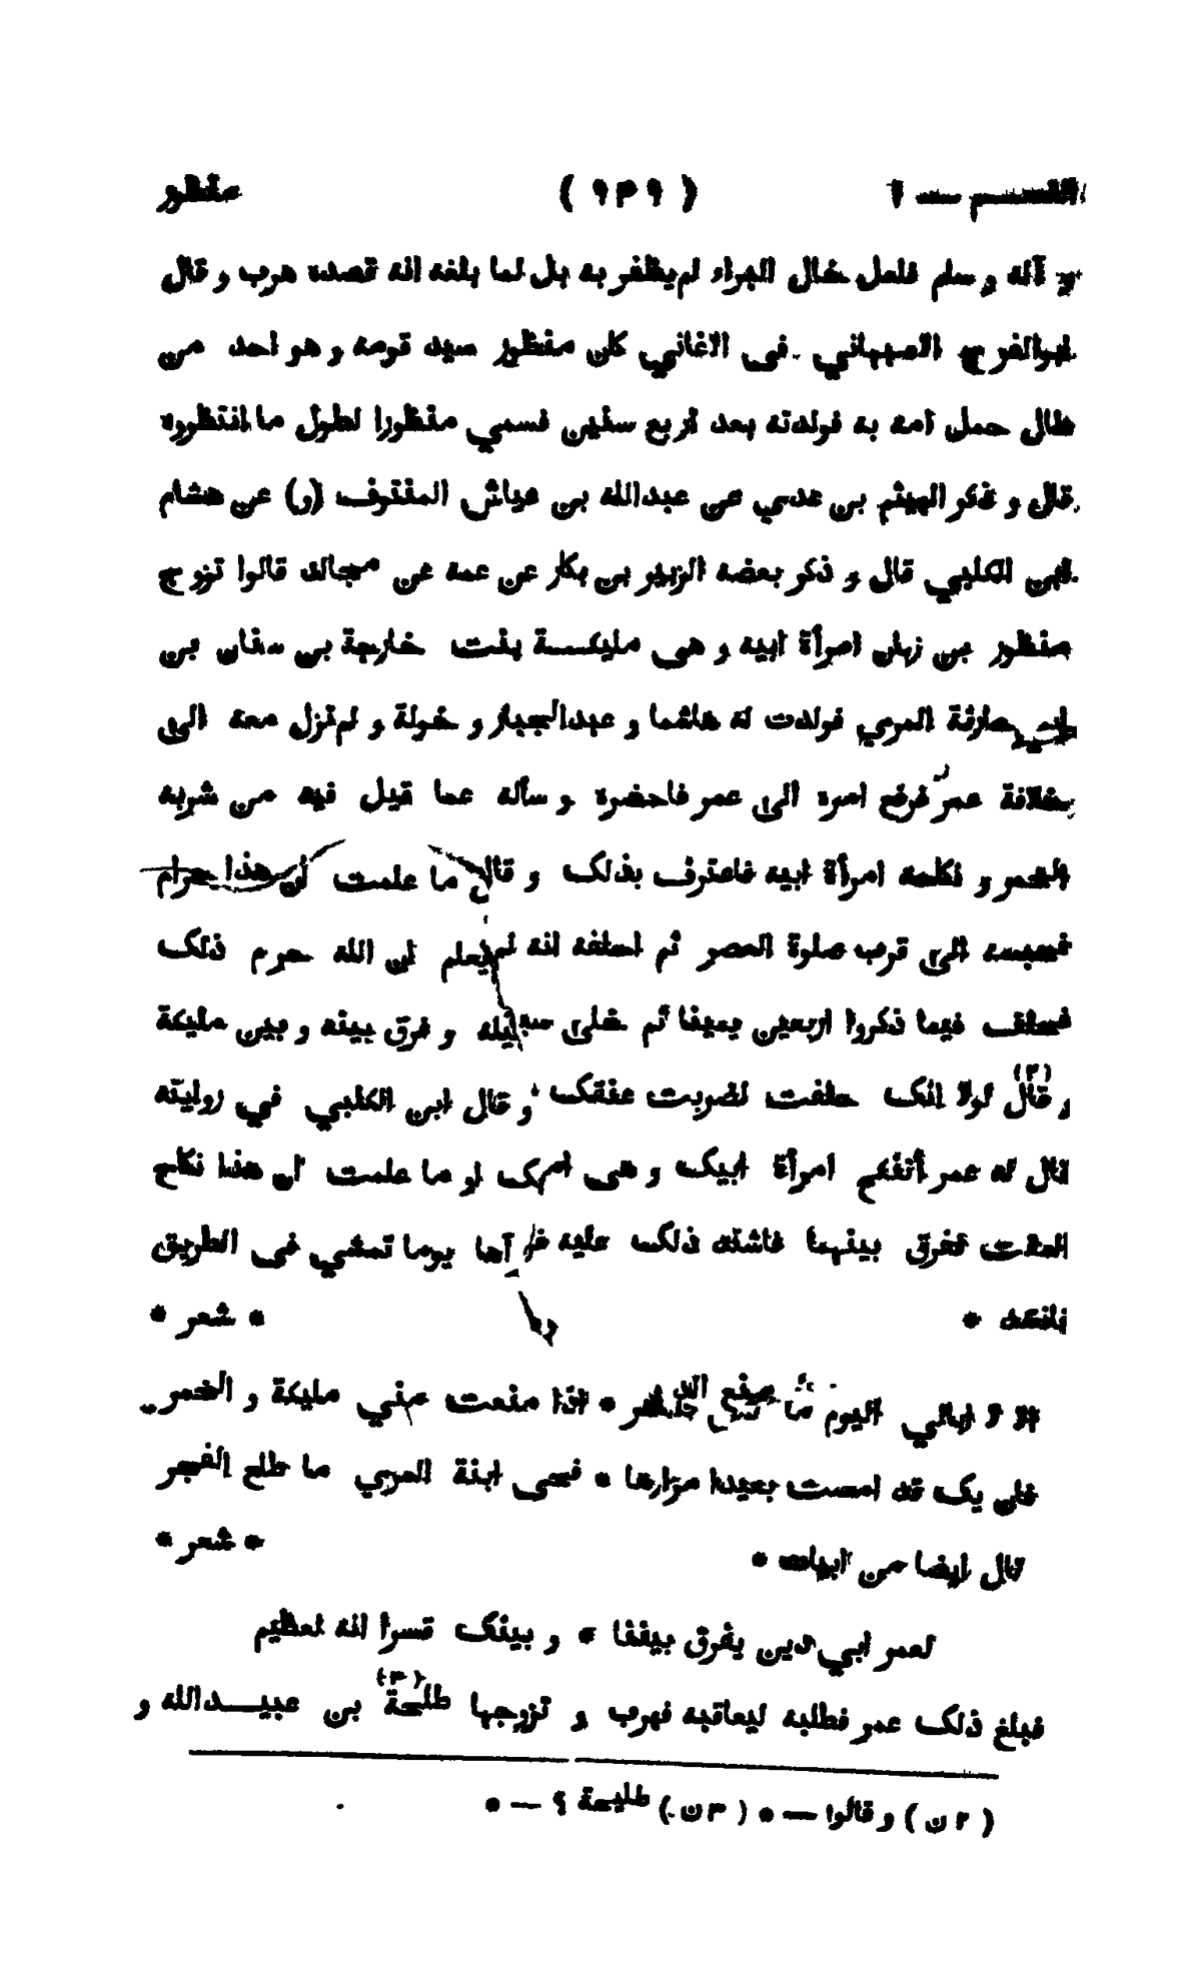 القسم — ١ ( ٩٣٩ ) منظور
و آله و سلم فلعل خال البراء لم يظفر به بل لما بلغه انه قصده هرب و قال
ابوالفرج الاصبهاني فى الاغاني كان منظور سيد قومه و هو احد من
طال حمل امه به فولدته بعد اربع سنين فسمي منظورا لطول ما انتظروه
قال و ذكر الهيثم بن عدي عن عبدالله بن عياش المنتوف (و) عن هشام
ابن الكلبي قال و ذكر بعضه الزبير بن بكار عن عمه عن مجالد قالوا تزوج
منظور بن زبان امرأة ابيه و هى مليكة بنت خارجة بن سنان بن
ابي حارثة المري فولدت له هاشما و عبدالجبار و خولة و لم تزل معه الى
خلافة عمر فرفع امره الى عمر فاحضره و سأله عما قيل فيه من شربه
الخمر و نكاحه امرأة ابيه فاعترف بذلک و قال ما علمت ان هذا حرام
فحبسه الى قرب صلوة العصر ثم احلفه انه لم يعلم ان الله حرم ذلک
فحلف فيما ذكروا اربعين يمينا ثم خلى سبيله و فرق بينه و بين مليكة
و قال (٢) لولا انک حلفت لضربت عنقک و قال ابن الكلبي في روايته
قال له عمر أتنكح امرأة ابيک و هى امک او ما علمت ان هذا نكاح
المقت ففرق بينهما فاشتد ذلک عليه فرآها يوما تمشي فى الطريق
فانشد * * شعر *
الا لا ابالي اليوم ما صنع الدهر * اذا منعت مني مليكة و الخمر
فان يک قد امست بعيدا مزارها * فحى ابنة المري ما طلع الفجر
قال ايضا من ابيات * * شعر *
لعمر ابي دين يفرق بيننا * و بينک قسرا انه لعظيم
فبلغ ذلک عمر فطلبه ليعاقبه فهرب و تزوجها طلحة (٣) بن عبيدالله و
( ٢ ن ) و قالوا — * ( ٣ ن ) طليحة ؟ — *